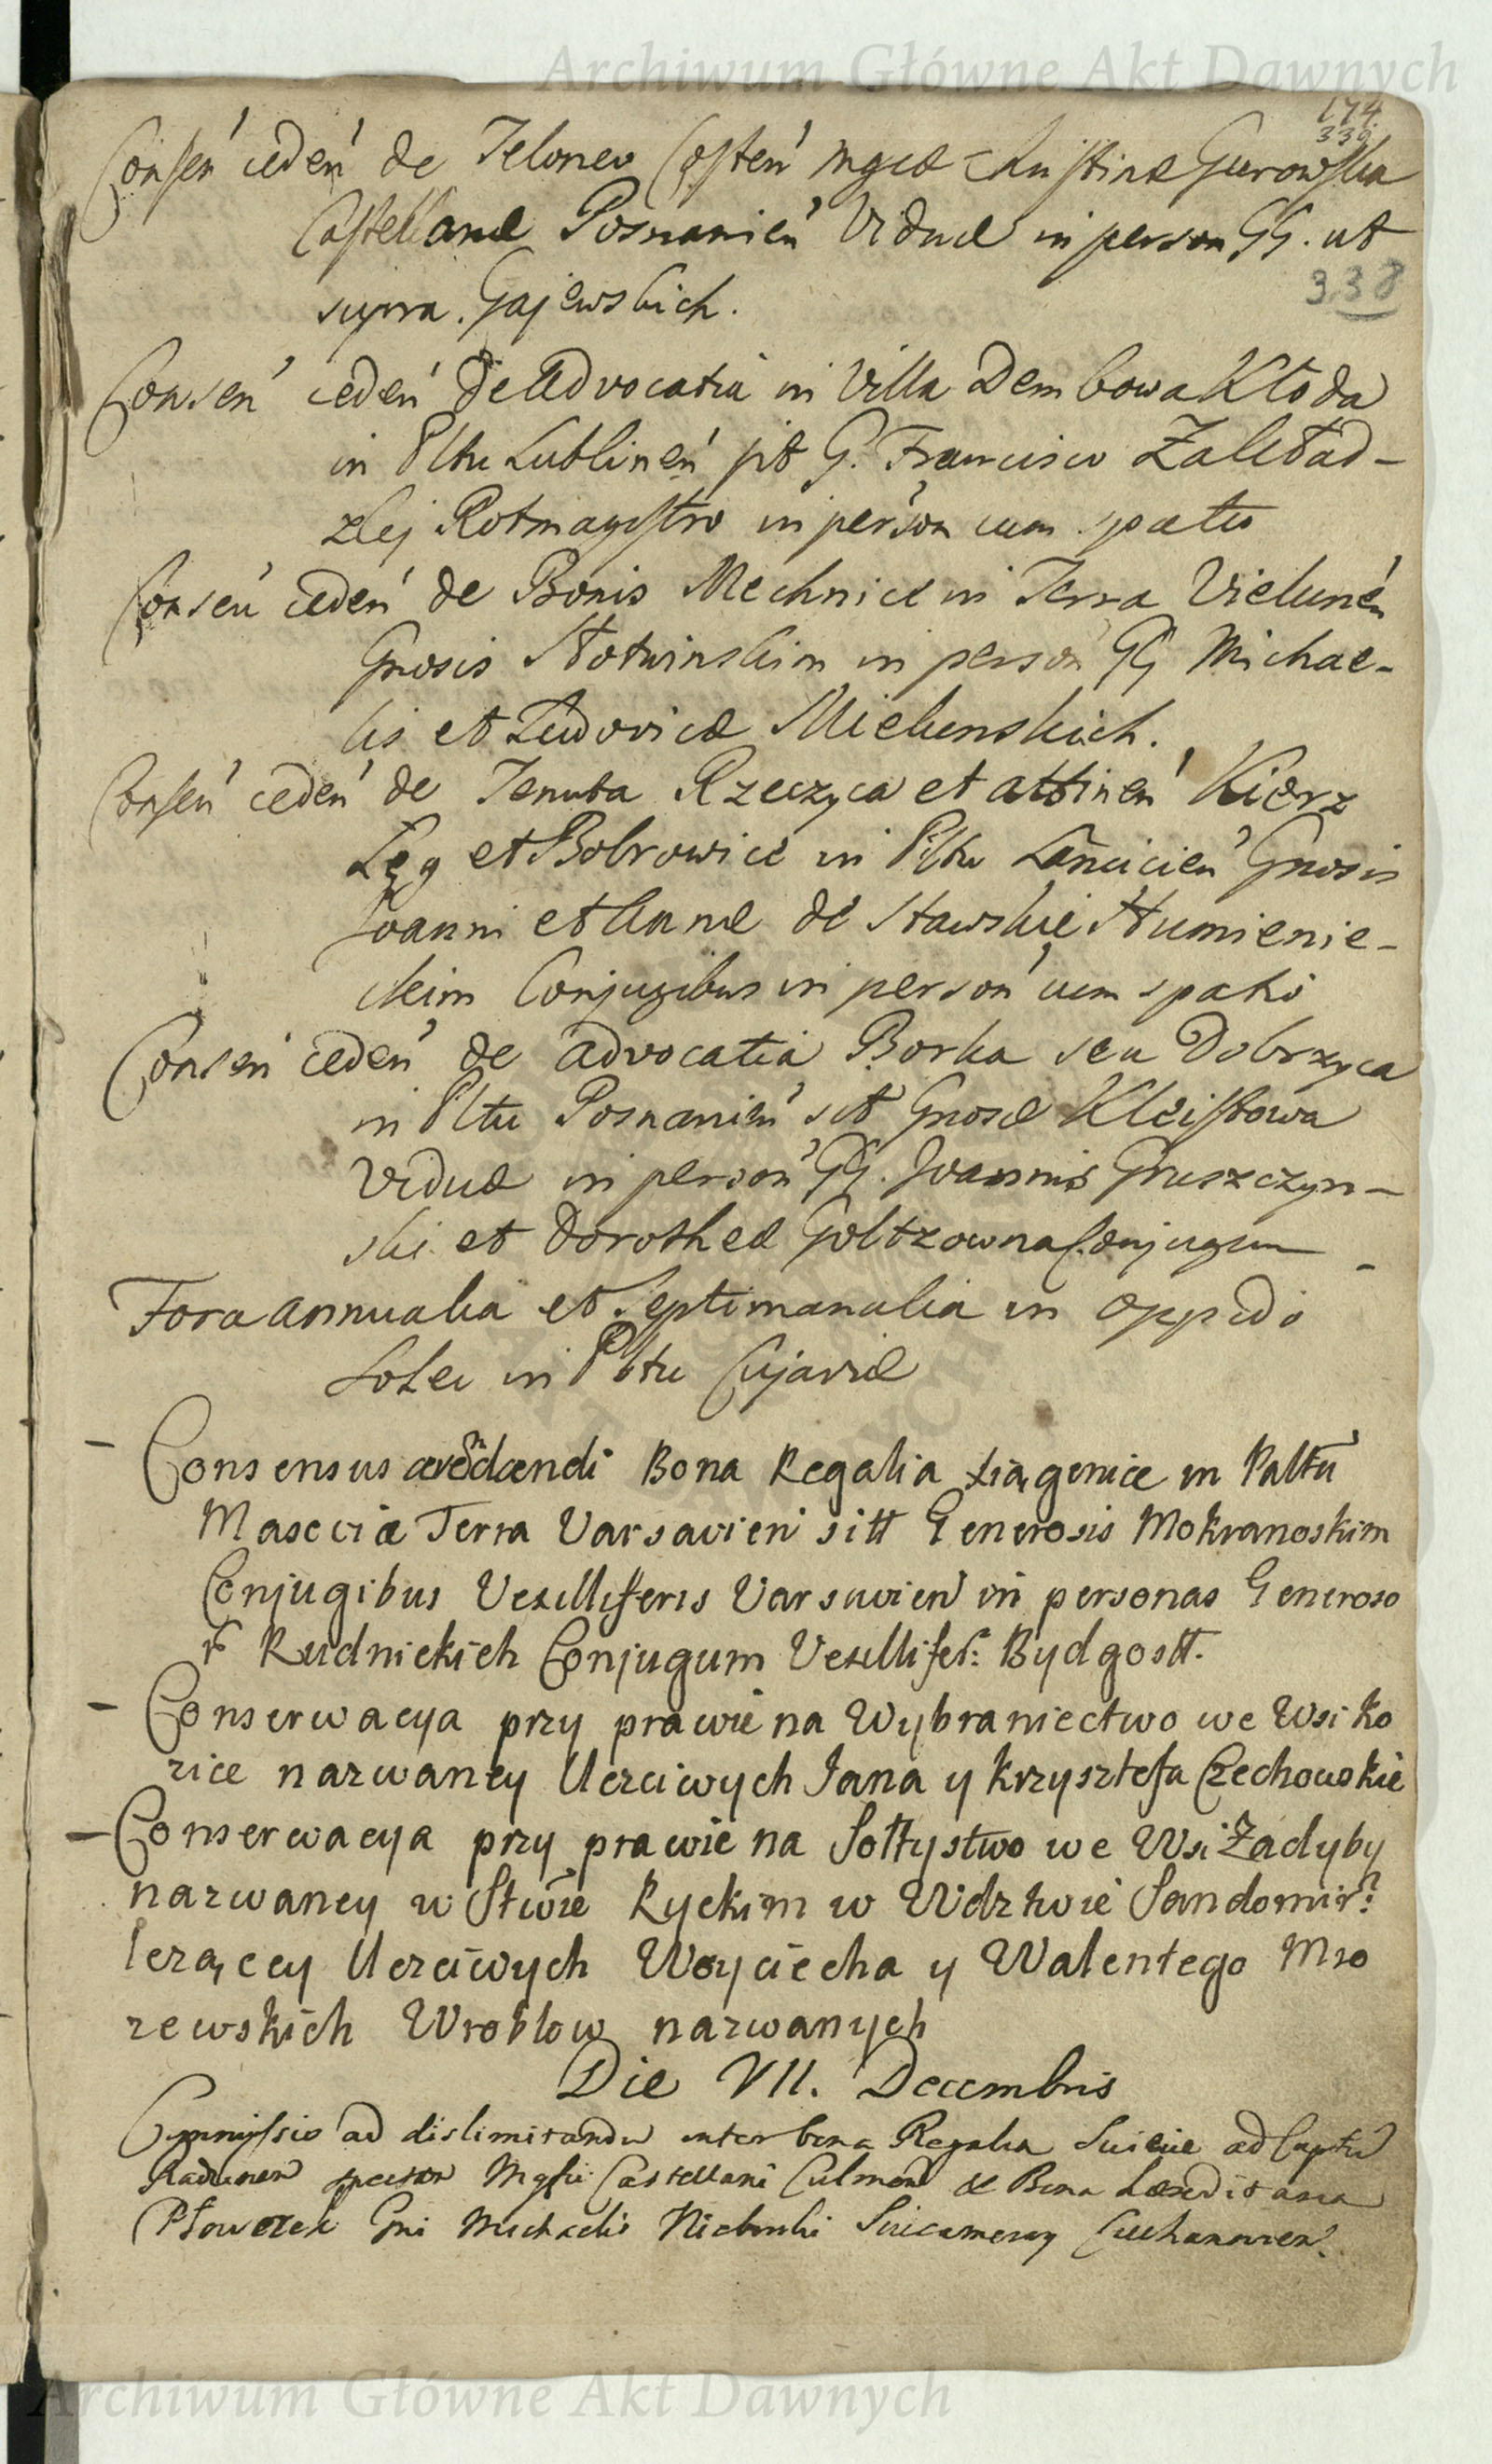 Archiwum Główne Akt Dawnych
174.
339.
Consen̄ ceden̄ de Teloneo Costen̄ Mgcæ Christinæ Gurowska
Castellanæ Posnanien̄ Viduæ in person GG. ut
338
supra. Gajewskich.
Consen̄ ceden̄ de Advocatia in Villa Dembowa Kłoda
in Pltu Lublinen̄ sit G. Francisco
Rotmagistro in person cum spatio
Consen̄ ceden̄ de Bonis Mechnice in Terra Vielunen̄
Gnosis Słotwinskim in person̄ GG Michae-
lis et Ludovicæ Mielenskich.
Consen̄ ceden̄ de Tenuta Rzeczyca et attinen̄ Kierz
Łęg et Bobrowice in Pltu Lancicien̄ Gnosis
Joanni et Annæ de Stawskie Humienie-
ckim Conjugibus in person̄ cum spatio
Consen̄ ceden̄ de advocatia Borka seu Dobrzyca
in Pltu Posnanien̄ sit Gnosæ Kleistowa
Viduæ in person̄ GG. Joannis Gruszczyn-
ski et Dorotheæ Goltzowna Conjugum
Fora annualia et Septimanalia in oppido
in Pltu Cujaviæ
– Consensus arēdandi Bona Regalia Xiągenice in Paltu
Masoviæ Terra Varsavien̄ sitt Generosis Mokranoskim
Conjugibus Vexilliferis Varsavien̄ in personas Generoso
r̄ Rudnickich Conjugum Vexillifer: Bydgostt.
– Conserwacya przy prawie na Wybraniectwo we Wsi Ko
zice nazwaney Uczciwych Jana y Krzysztofa Czechowskie
– Conserwacya przy prawie na Sołtystwo we Wsi Zadyby
nazwaney w Stwie Ryckim w Wdztwie Sandomir:
lezącey Uczciwych Woyciecha y Walentego Mro
zewskich Wroblow nazwanych
Die VII. Decembris
Commissio ad dislimitandu inter bona Regalia ad Captu
Radzinen̄ Mgfci Castellani Culmen̄ & Bona hæreditaria
Gni Michaelis Succamerary Ciechanovien̄.
Archiwum Główne Akt Dawnych